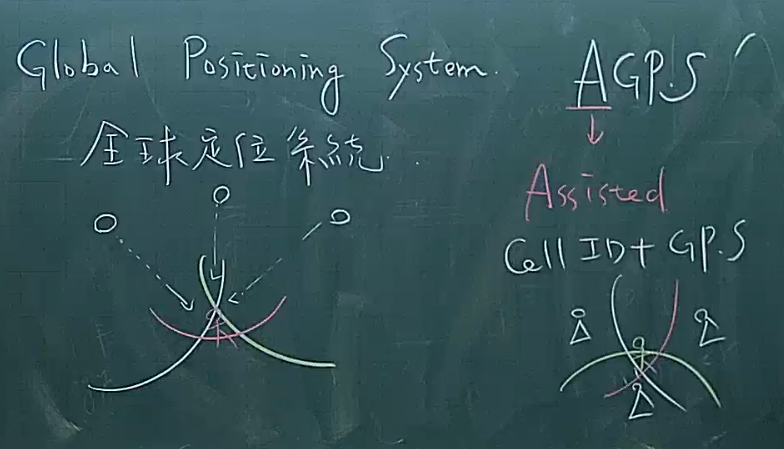 Global Positioning System.
全球定位系統.
AGPS
Assisted
Cell ID + GPS